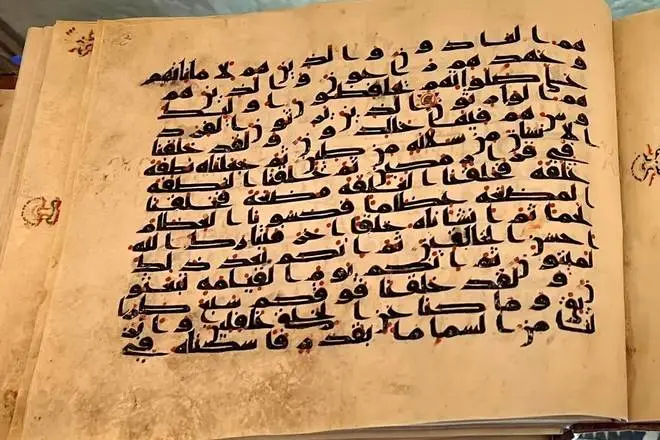 هم العادون والذين هم لاماناتهم
وعهدهم راعون والذين هم
على صلواتهم يحافظون اولئك
هم الوارثون الذين يرثون الفردو
س هم فيها خالدون ولقد خلقنا
الانسان من سلالة من طين ثم جعلناه نطفة
في قرار مكين ثم خلقنا النطفة
علقة فخلقنا العلقة مضغة فخلقنا
المضغة عظاما فكسونا العظام
لحما ثم انشاناه خلقا اخر فتبارك الله
احسن الخالقين ثم انكم بعد ذلك
لميتون ثم انكم يوم القيامة تبعثو
ن ولقد خلقنا فوقكم سبع طرا
ئق وما كنا عن الخلق غافلين وانز
لنا من السما ما بقدر فاسكناه في